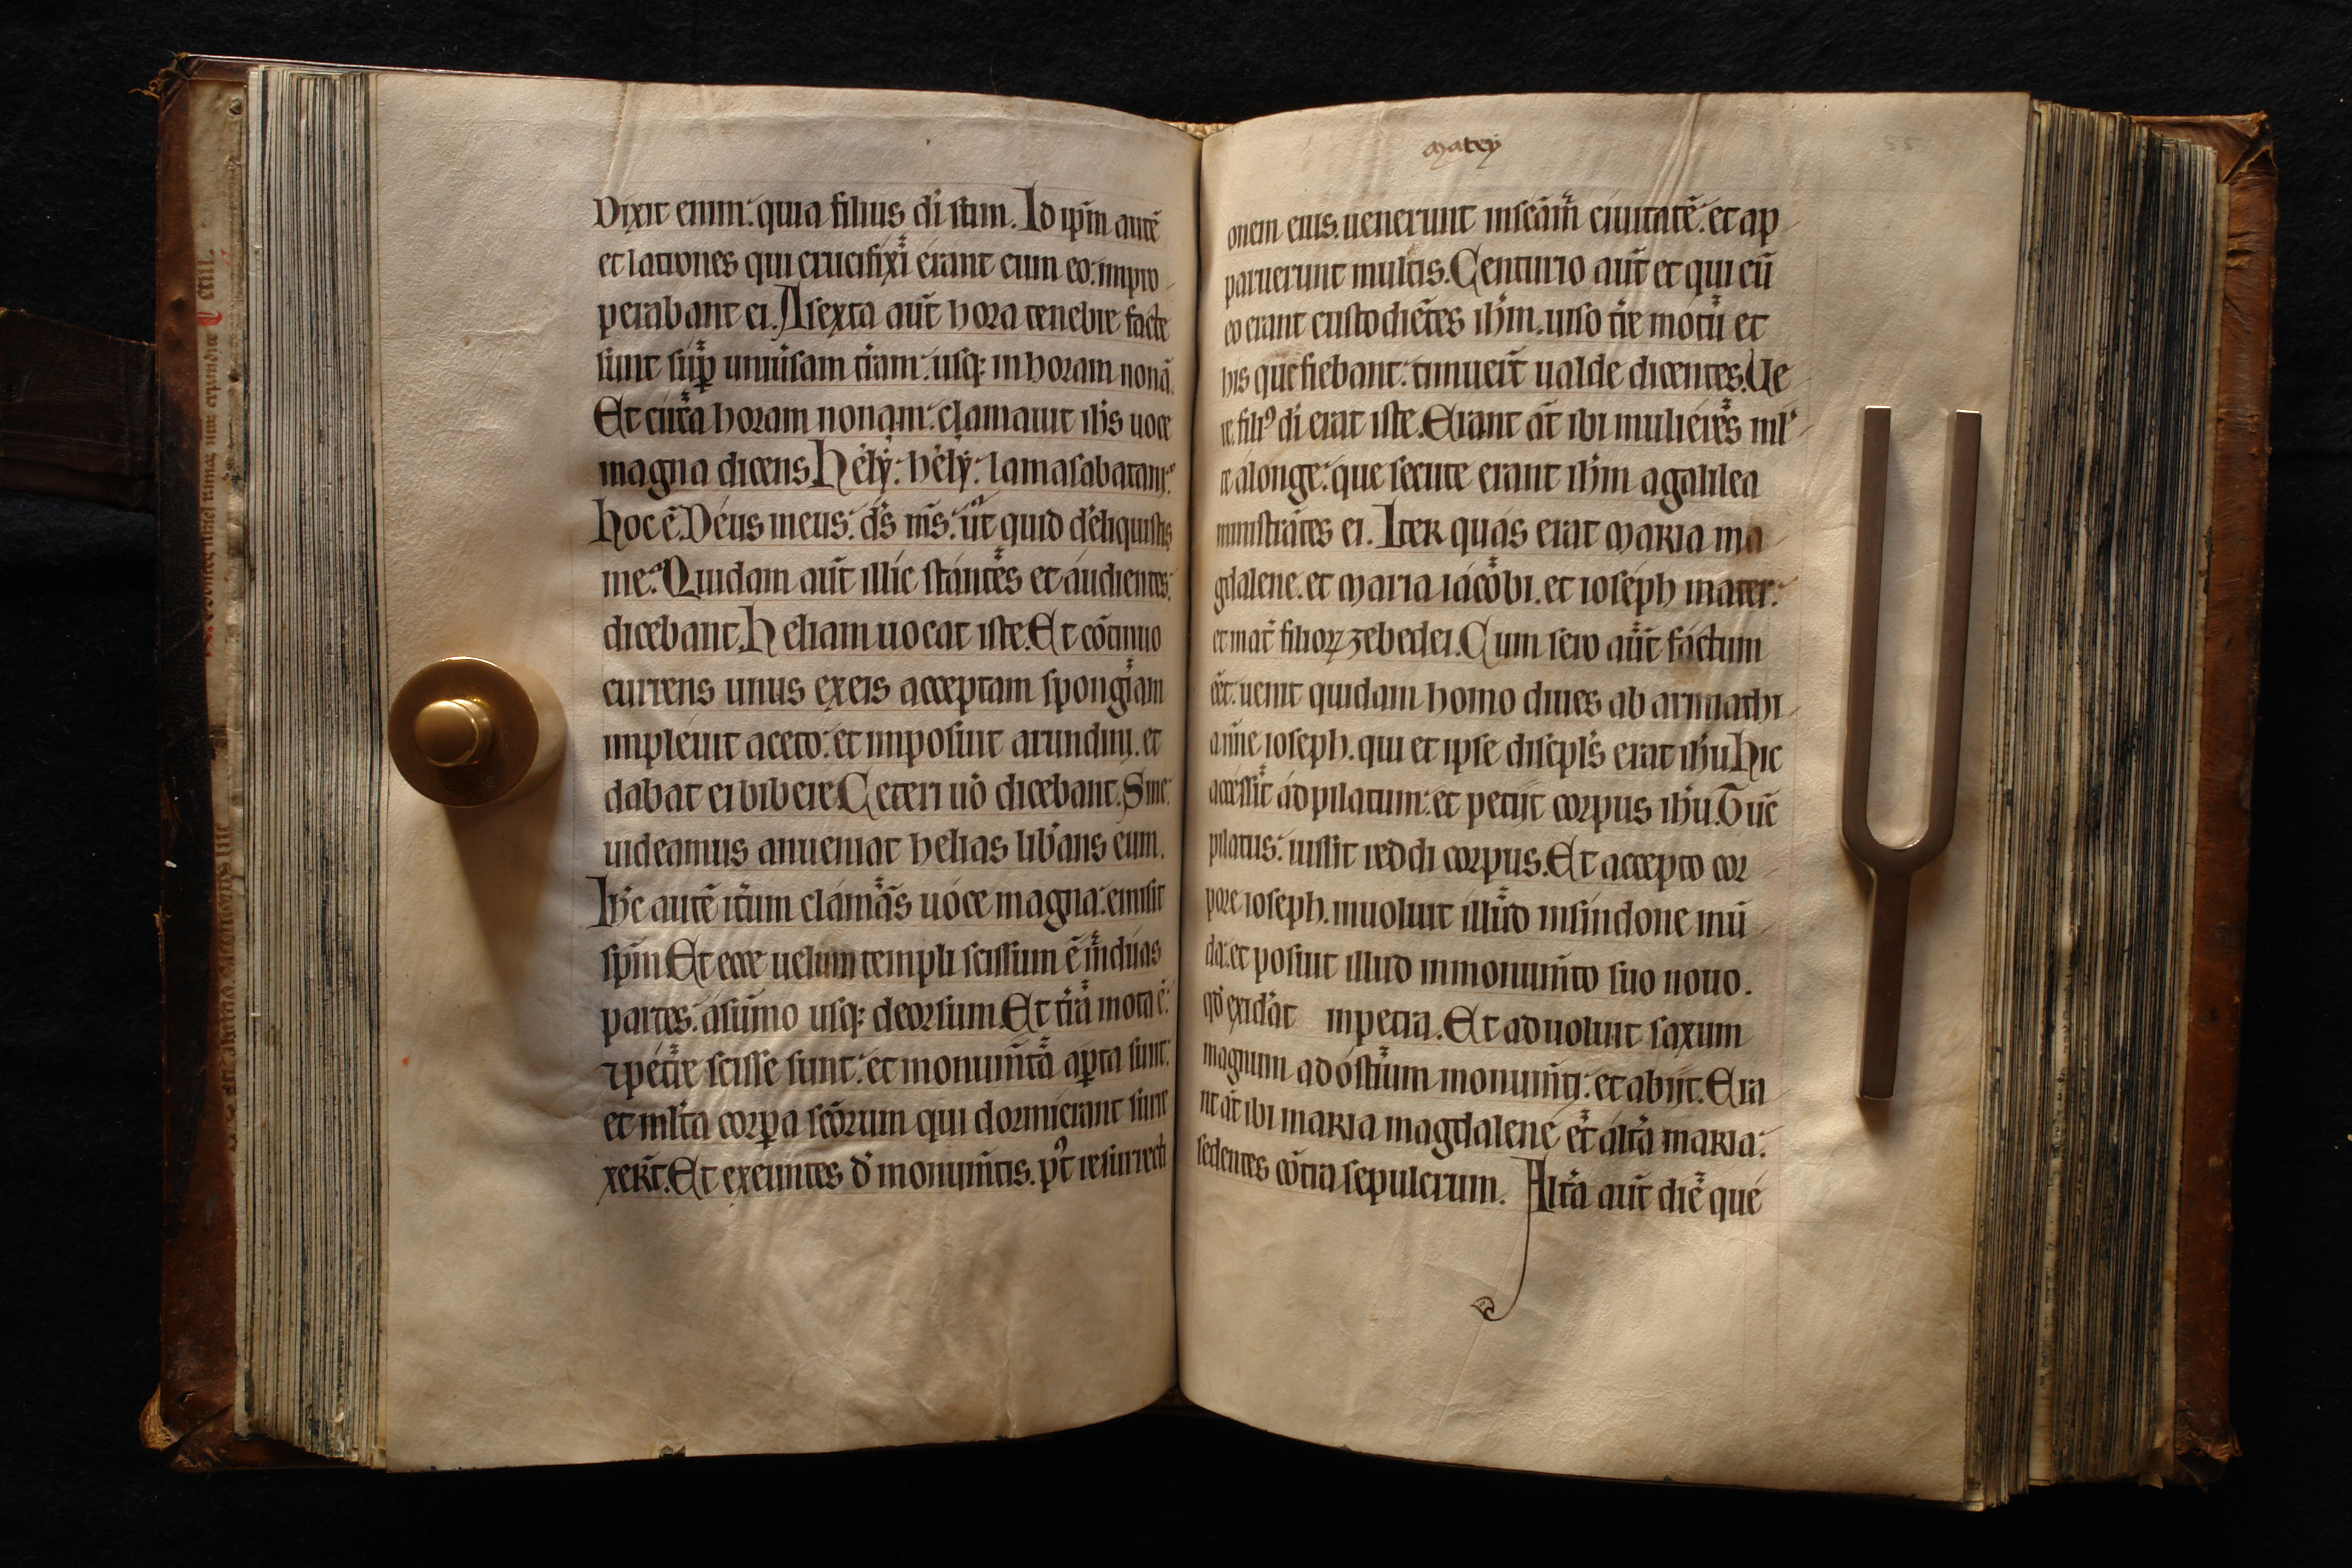 Dixit enim: quia filius di sum. Id ipm autē
et latrones qui crucifixi erant cum eo: impro
perabant ei. A sexta aut hora tenebre facte
sunt sup uniuersam tram: usq; in horam nonā.
Et circa horam nonam: clamauit ihs uoce
magna dicens. Hely: hely: lamasabatani:
hoc ē. Deus meus: ds ms: ut quid dereliquistis
me? Quidam aut illic stantes et audientes:
dicebant. Heliam uocat iste. Et cōtinuo
currens unus ex eis acceptam spongiam
impleuit aceto: et imposuit arundini. et
dabat ei bibere. Ceteri uo dicebant. Sine:
uideamus an ueniat helias libans eum.
Ihc autē itum clamās uoce magna: emisit
spm. Et ecce uelum templi scissum ē in duas
partes: a sūmo usq; deorsum. Et tra mota ē:
⁊ petre scisse sunt: et monumta apta sunt:
et mlta corpa scōrum qui dormierant surre
xert. Et exeuntes d monumtis. pt resurrecti
matey
55
onem eius. uenerunt in scām ciuitatē: et ap
paruerunt multis. Centurio aut et qui cū
eo erant custodiētes ihm. uiso tre motu et
his que fiebant: timuert ualde dicentes. Ue
re filiꝰ di erat iste. Erant at ibi mulieres ml
te a longe: que secute erant ihm a galilea
ministrātes ei. Inter quas erat maria ma
gdalene. et maria iacobi. et ioseph mater:
et mat filioꝝ zebedei. Cum sero aut factum
eet: uenit quidam homo diues ab arimathi
a nne ioseph. qui et ipse discipls erat ihu. Hic
accessit ad pilatum: et petijt corpus ihu. Tūc
pilatus: iussit reddi corpus. Et accepto cor
pore ioseph. inuoluit illud in sindone mū
da: et posuit illud in monumto suo nouo.
qd exidat in petra. Et aduoluit saxum
magnum ad ostium monumti: et abijt. Era
nt at ibi maria magdalene et alta maria:
sedentes cōtra sepulcrum. Alta aut die que